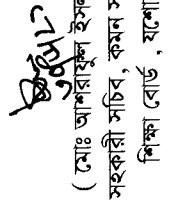 ( মোঃ আশরাফুল ইসল
সহকারী সচিব, কমন স
শিক্ষা বোর্ড, যশো